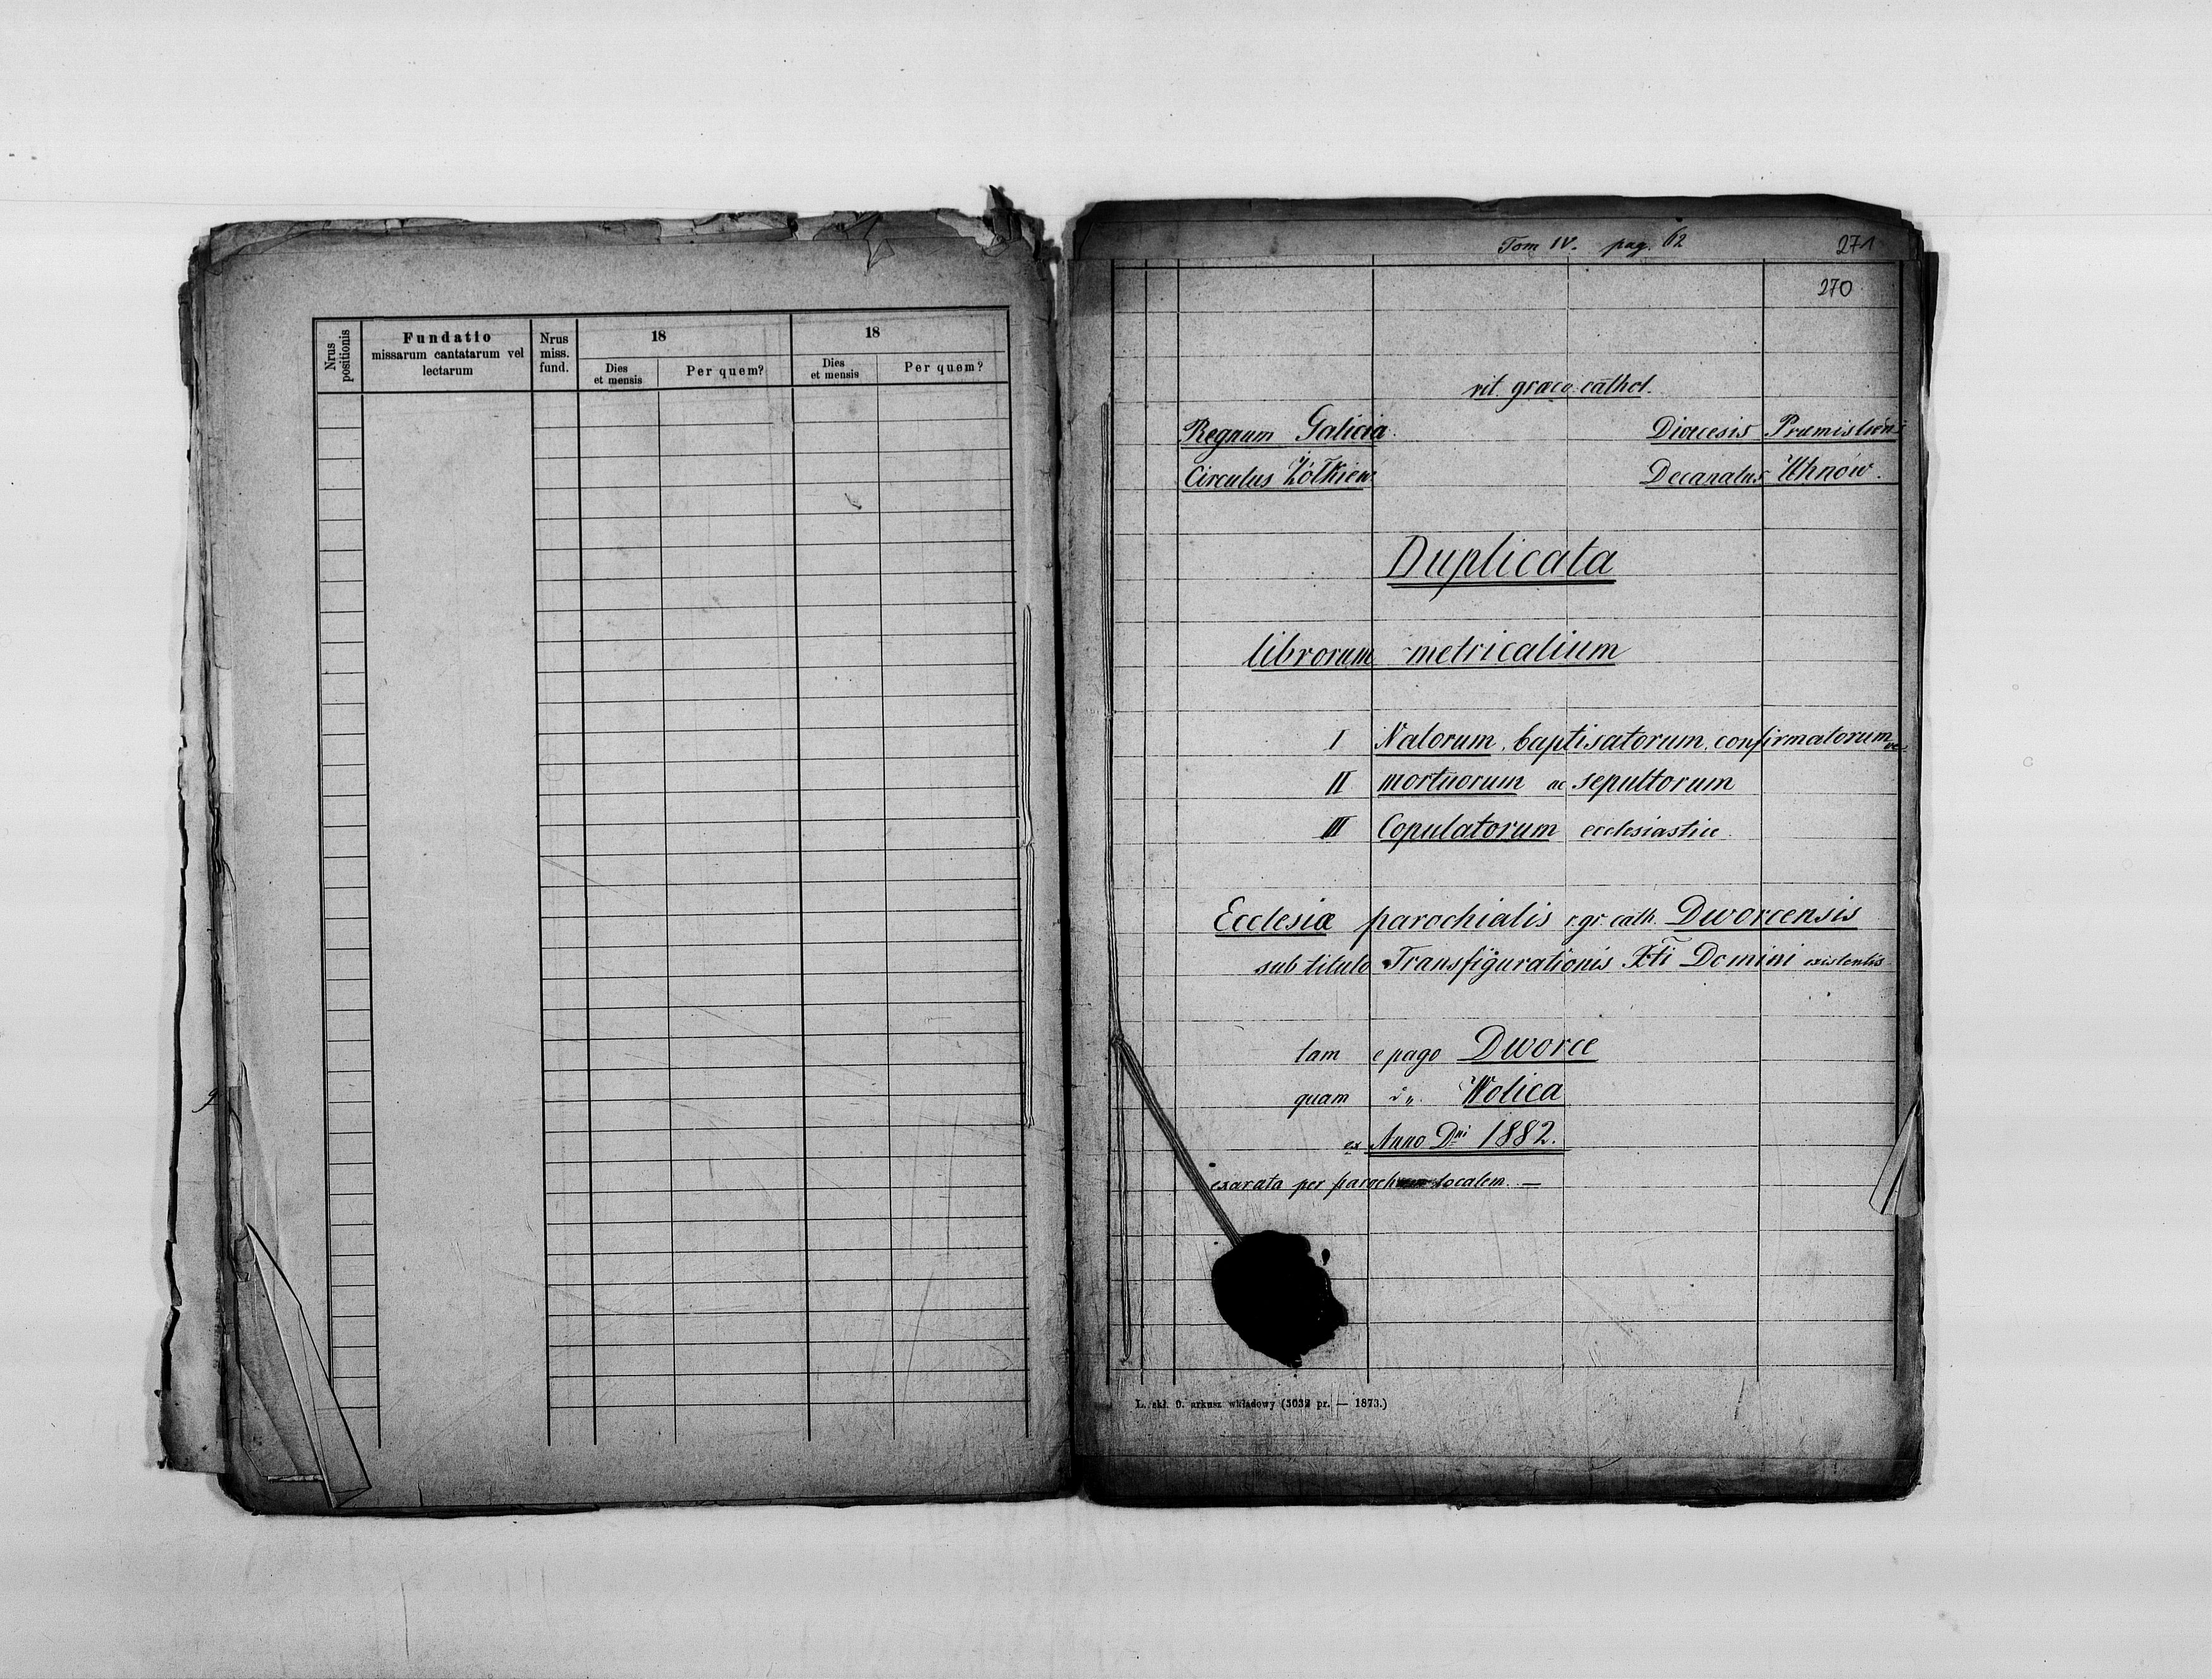 Nrus positionis
Fundatio
missarum cantatarum vel
lectarum
Nrus
miss.
fund.
18
Dies
et mensis
Per quem?
18
Dies
et mensis
Per quem?
Tom IV. pag. 62
271
270
rit. graeco cathol.
Regnum Galicia.
Dioecesis Premislien
Circulus Żółkiew
Decanatus Uhnów.
Duplicata
librorum metricalium
I Natorum, baptisatorum, confirmatorum
II mortuorum ac sepultorum
III Copulatorum ecclesiastice.
Ecclesiæ parochialis r. gr. cath. Dworcensis
sub titulo Transfigurationis Xti Domini existentis
tam e pago Dworce
quam " Wolica
ex Anno Dni 1882.
exarata per parochum localem. —
L. skł. 9. arkusz wkładowy (5032 pr. — 1873.)